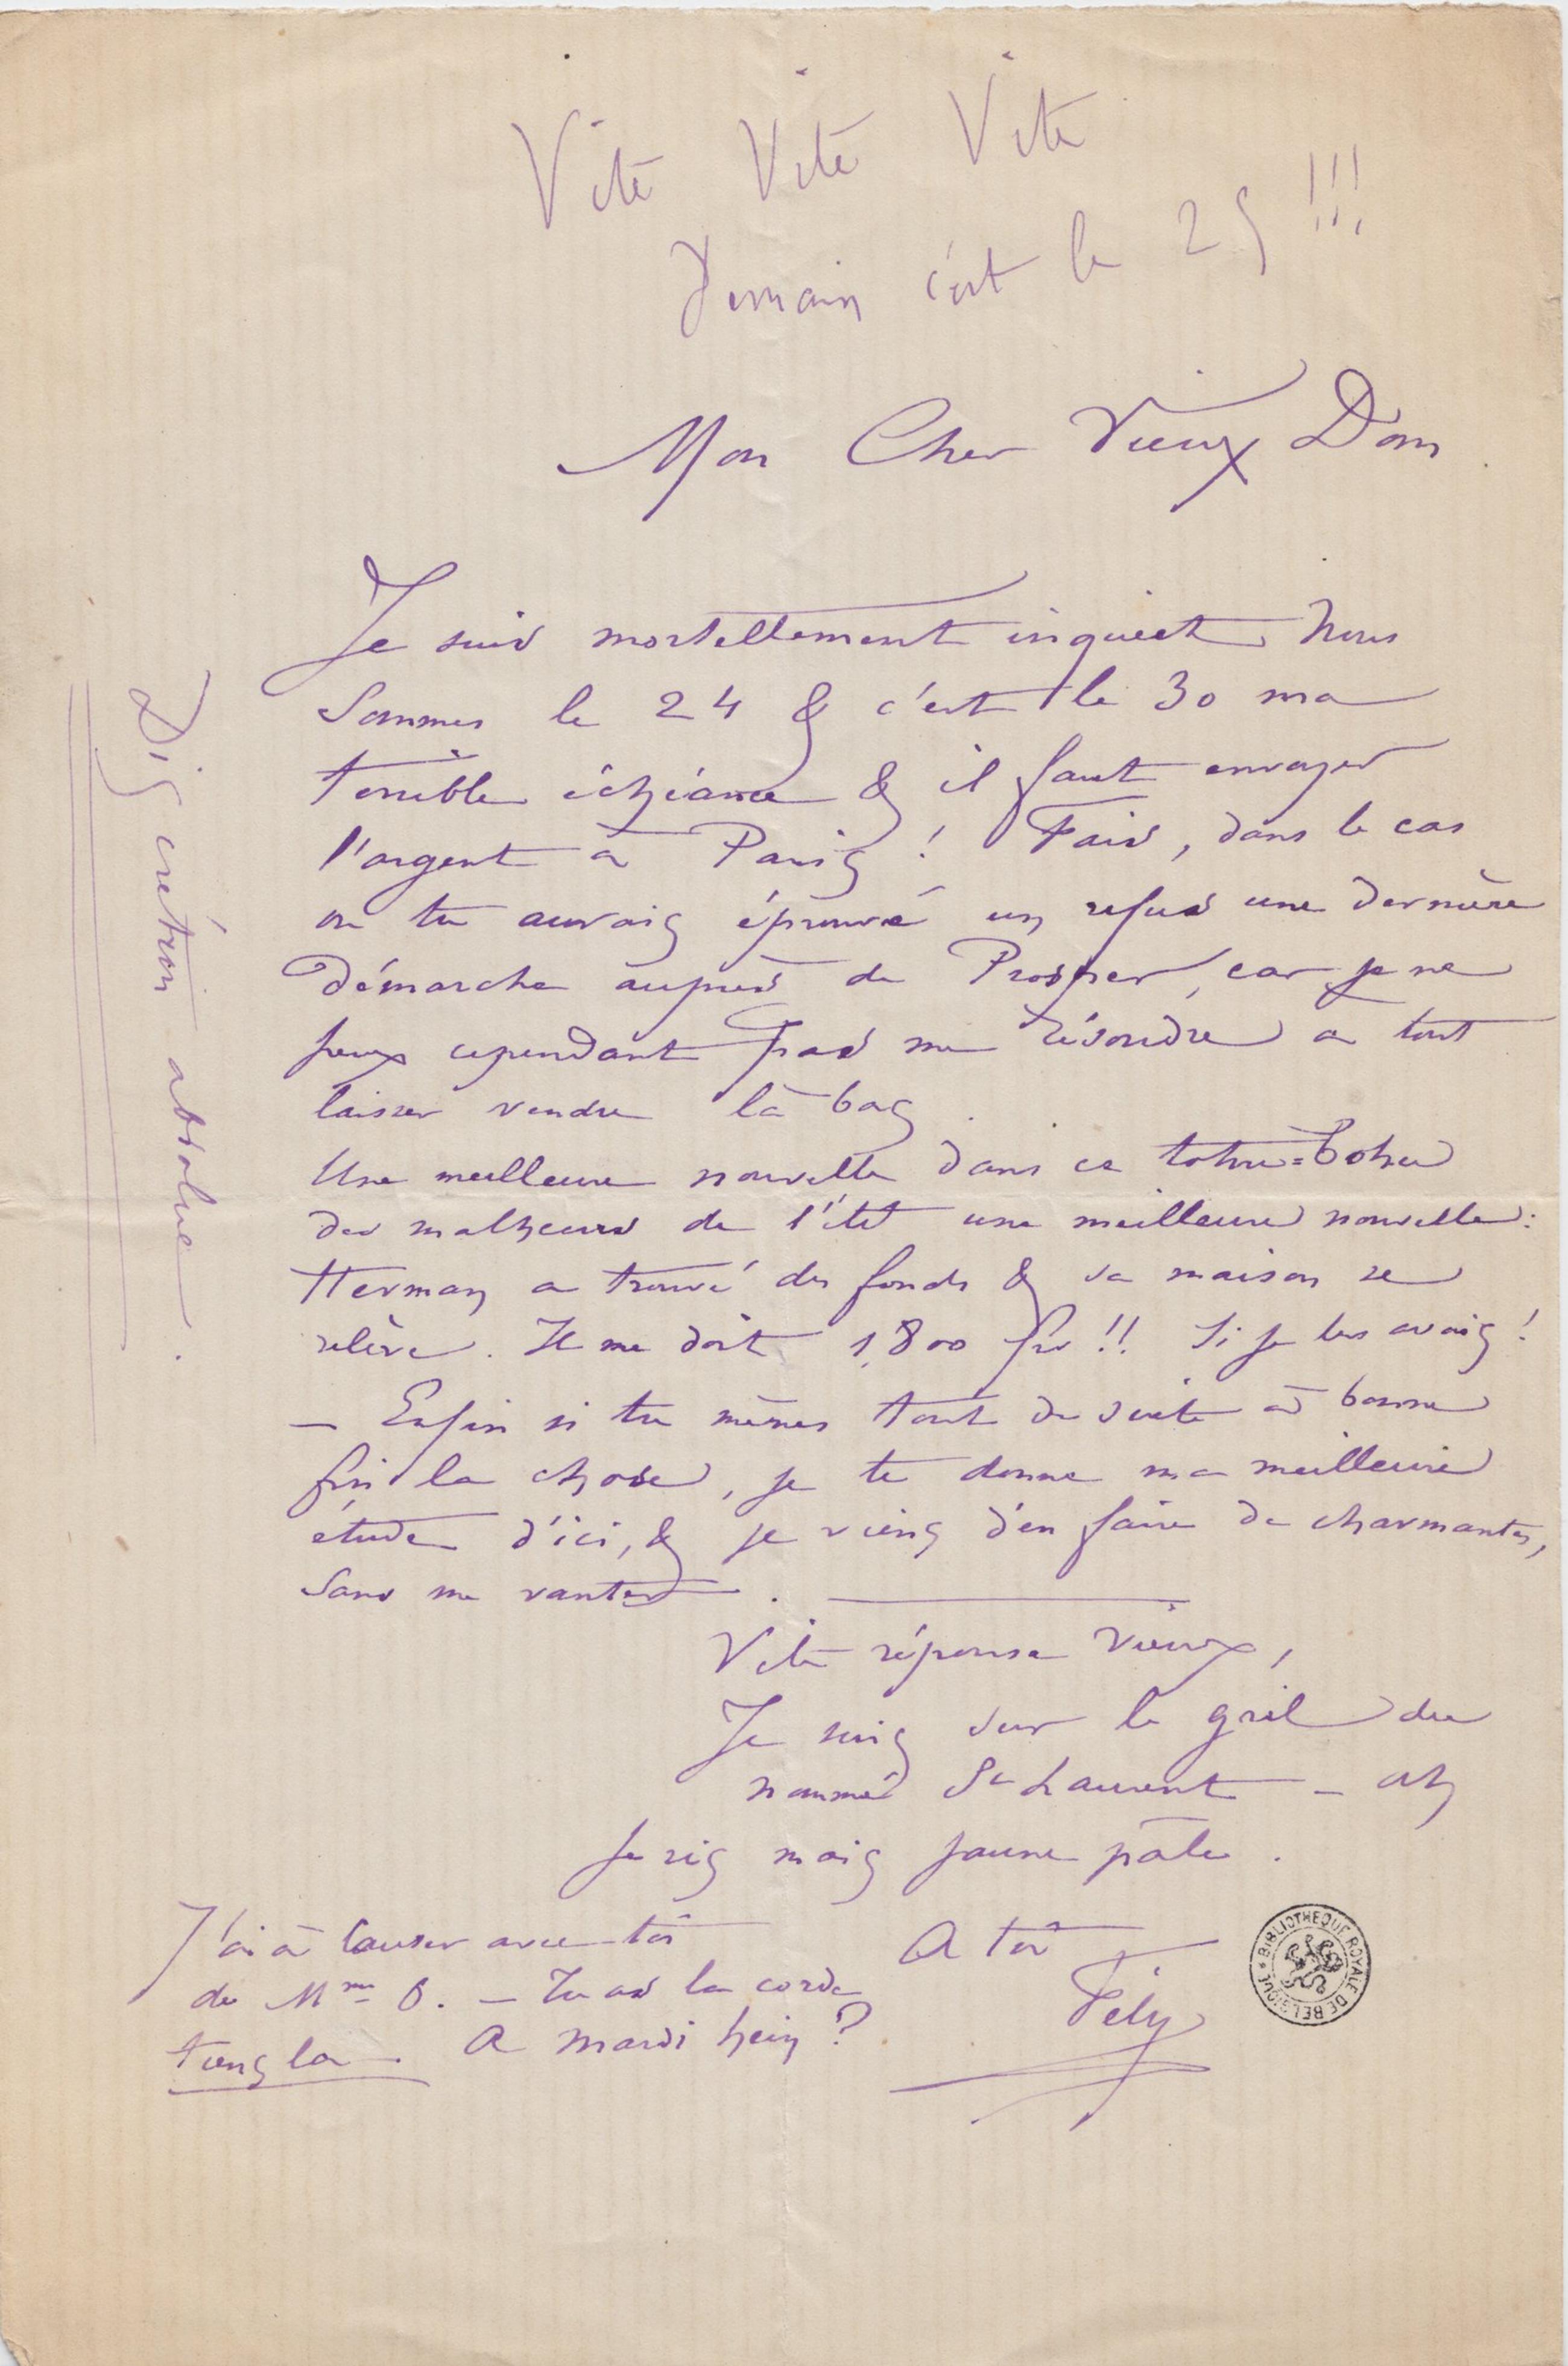 Vite Vite Vite
Demain c'est le 25 !!!
Mon Cher Vieux Dom
Je suis mortellement inquiet Nous
Sommes le 24 & c'est le 30 ma
terrible échéance & il faut envoyer
l'argent à Paris ! Fais, dans le cas
ou tu aurais éprouvé un refus une dernière
démarche auprès de Prosper, car je ne
peux cependant pas me résoudre a tout
laisser vendre là bas.
Une meilleure nouvelle dans ce tohu=bohu
des malheurs de l'été une meilleure nouvelle:
Herman a trouvé des fonds & sa maison se
relève. Il me doit 1,800 frs !! Si je les avais !
— Enfin si tu mènes tout de suite à bonne
fin la chose, je te donne ma meilleure
étude d'ici, & je viens d'en faire de charmantes,
Sans me vanter.
Vite réponse vieux,
Je suis sur le gril du
nommé St Laurent — ah
Je ris mais jaune pâle.
A toi
Fély
J'ai à causer avec toi
de Mme O. — Tu as la corde
tiens la. A mardi hein ?
Discrétion absolue.
BIBLIOTHEQUE ROYALE DE BELGIQUE